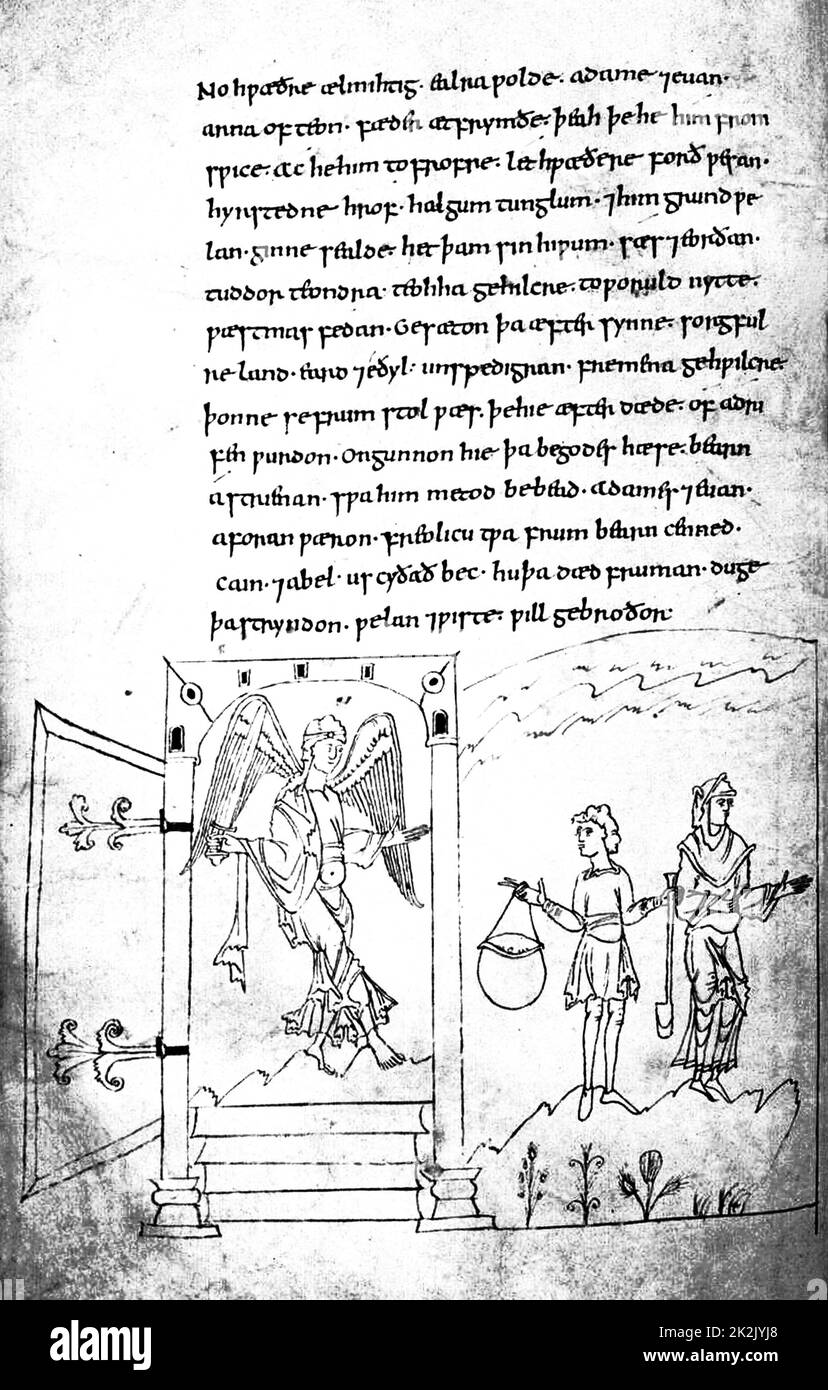 No hƿæðre ælmihtig · ealra ƿolde · adame ⁊ euan ·
arna ofteon · fæder ætfrymðe · þeah þe he him from
sƿice · ac he him to frofre · let hƿæðere forð ƿesan ·
hyrstedne hrof · halgum tunglum · ⁊ him grund ƿe
lan · ginne sealde · het þam sin hiƿum · sæs ⁊ eorðan ·
tuddor teondra · teohha gehƿilcre · to ƿoruld nytte ·
ƿæstmas fedan · Gesæton þa æfter synne · sorgful
re land · eard ⁊ eðyl · unspedigran · fremena gehƿilcre
þonne se frum stol ƿæs · þe hie æfter dæde · of adri
fen ƿurdon · Ongunnon hie þa be godes hæse · bearn
astrienan · sƿa him metod bebead · Adames ⁊ euan ·
aforan ƿæron · freolicu tƿa frum bearn cenned ·
cain · ⁊ abel · us cyðað bec · hu þa dæd fruman · duge
þa stryndon · ƿelan ⁊ ƿiste · ƿill gebroðor ·
alamy
Image ID: 2K2JYJ8
www.alamy.com